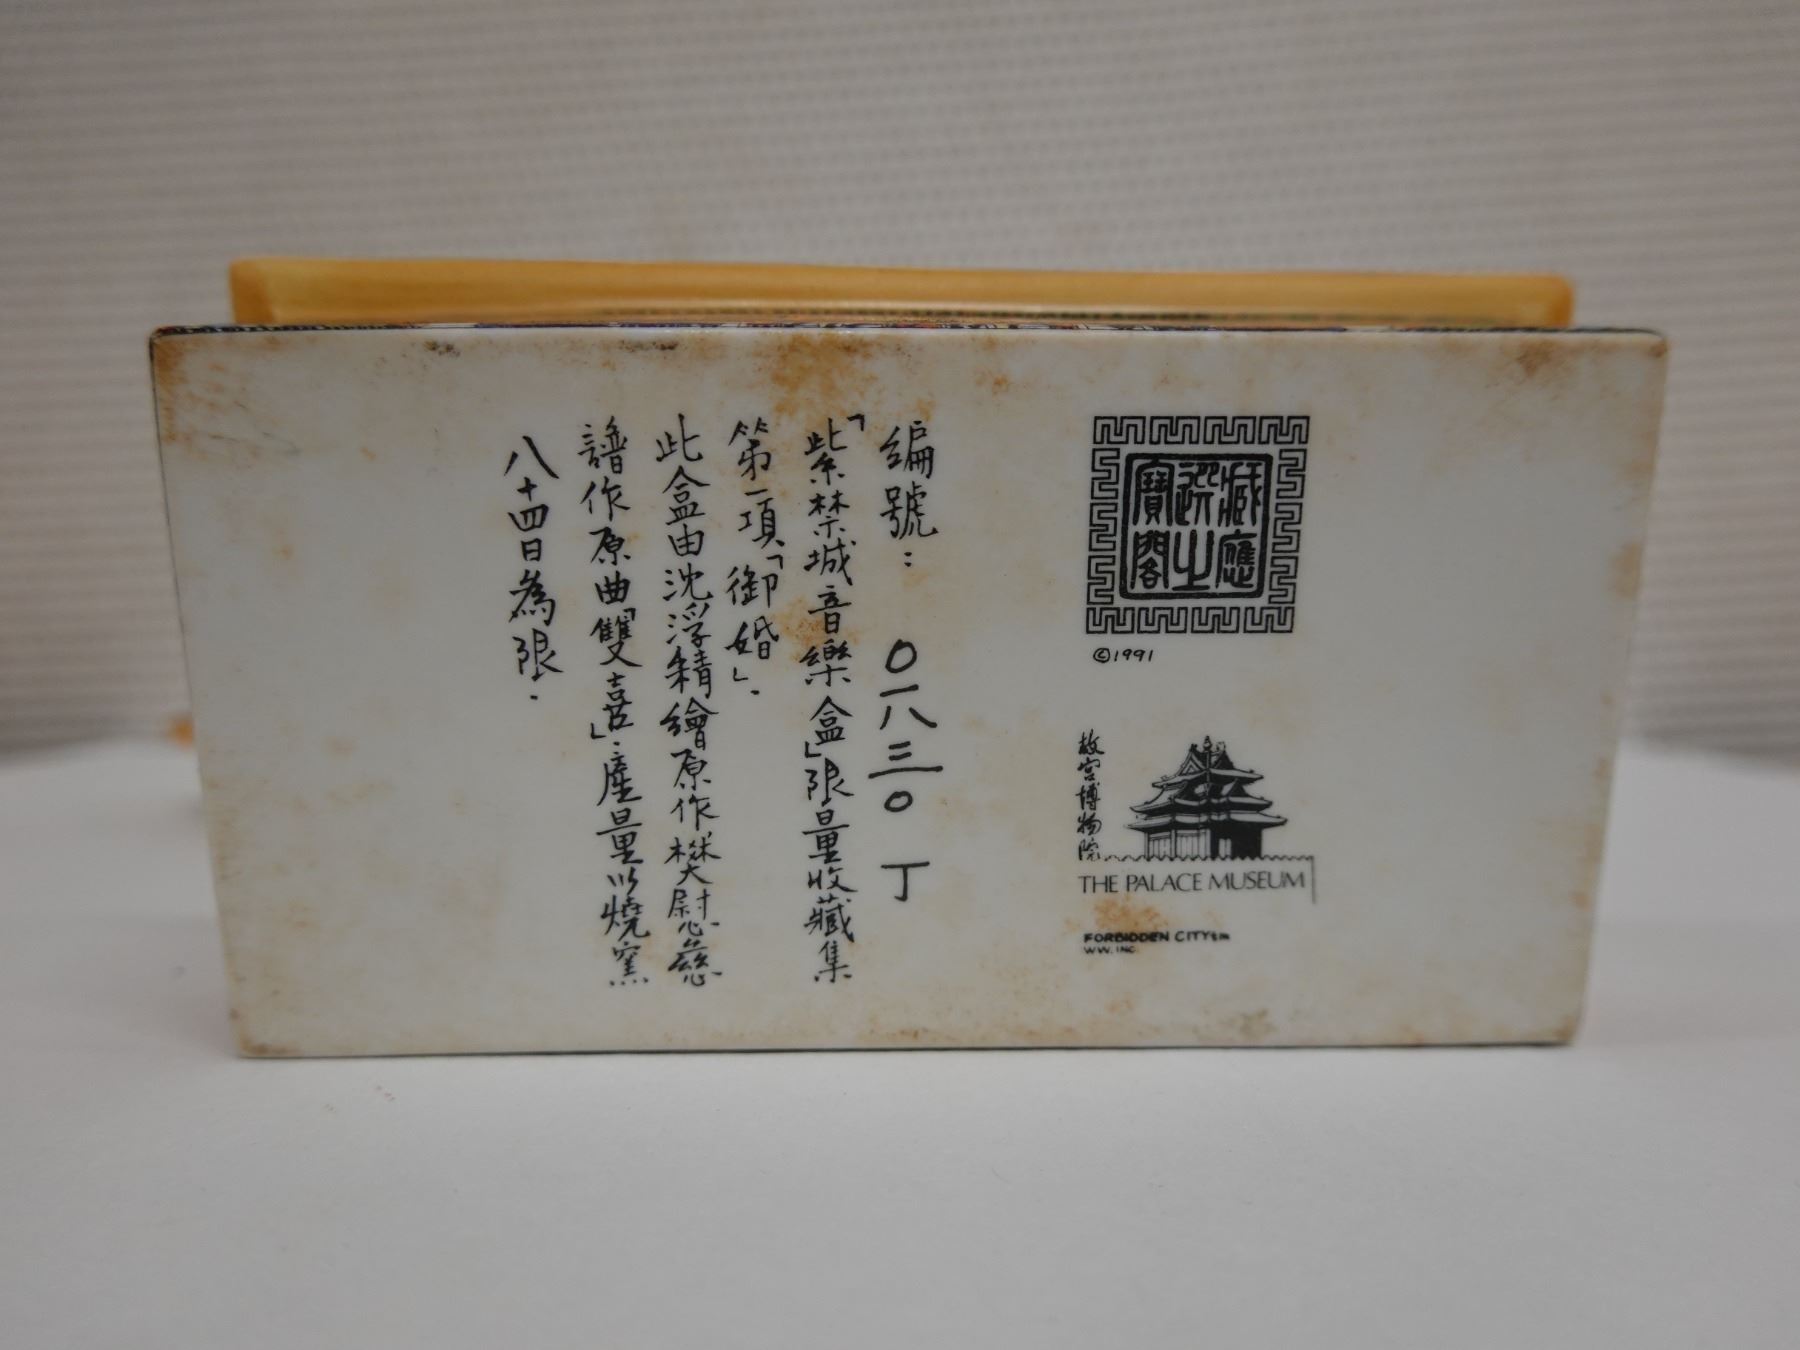 藏應
選之
寶閣
©1991
故宮博物院
THE PALACE MUSEUM
FORBIDDEN CITY™
WW. INC.
編號： 〇一八三〇 丁
「紫禁城音樂盒」限量收藏集
第一項「御婚」.
此盒由沈浮精繪原作樊慰慈
譜作原曲「雙喜」.產量以燒窯
八十四日為限.